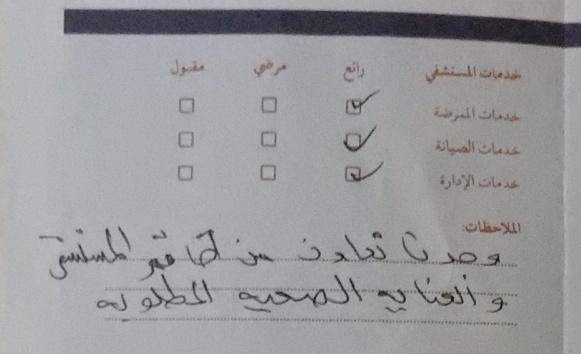 خدمات المستشفي رائع مرضي مقبول
خدمات الممرضة
خدمات الصيانة
خدمات الإدارة
الملاحظات:
وجدنا تعاون من طاقم المستشفى
والعنايه الصحيه المطلوبه